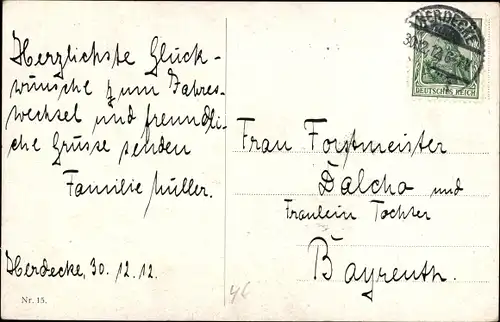 Herzlichste Glück-
wünsche zum Jahres-
wechsel und freundli-
che Grüsse senden
Familie Müller.
Herdecke, 30. 12. 12.
Nr. 15.
HERDECKE
DEUTSCHES REICH
Frau Forstmeister
Dalcho und
Fraulein Tochter
Bayreuth.